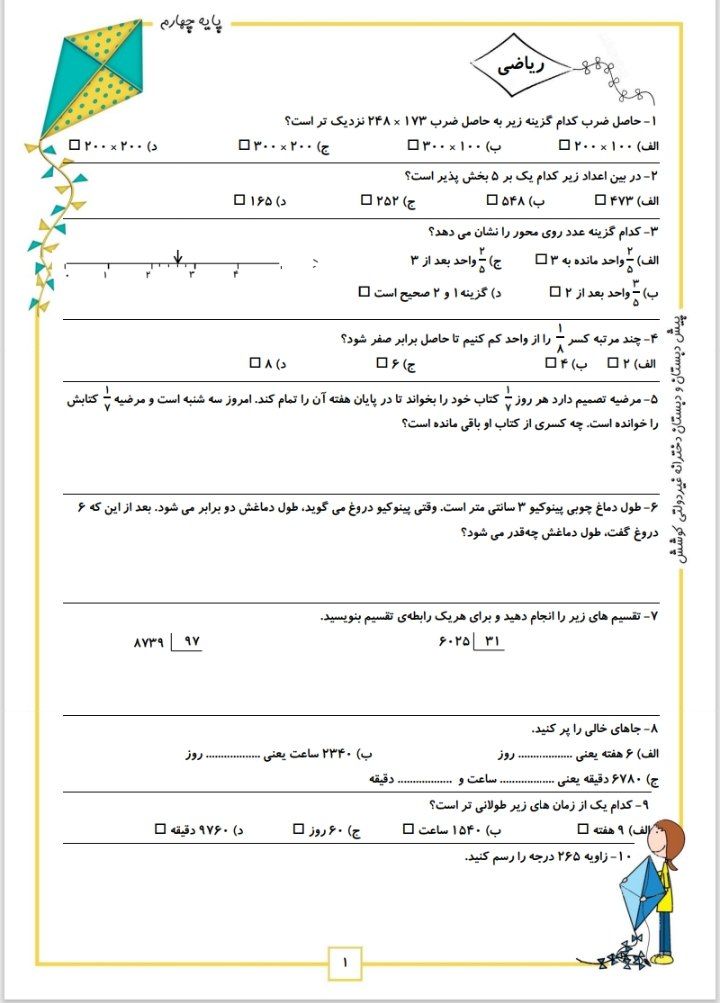 پایه چهارم
ریاضی
۱- حاصل ضرب کدام گزینه زیر به حاصل ضرب ۱۷۳ × ۲۴۸ نزدیک تر است؟
الف) ۱۰۰ × ۲۰۰ ☐ ب) ۱۰۰ × ۳۰۰ ☐ ج) ۲۰۰ × ۳۰۰ ☐ د) ۲۰۰ × ۲۰۰ ☐
۲- در بین اعداد زیر کدام یک بر ۵ بخش پذیر است؟
الف) ۴۷۳ ☐ ب) ۵۴۸ ☐ ج) ۲۵۲ ☐ د) ۱۶۵ ☐
۳- کدام گزینه عدد روی محور را نشان می دهد؟
الف) ۲/۵ واحد مانده به ۳ ☐ ج) ۲/۵ واحد بعد از ۳
۰ ۱ ۲ ۳ ۴
ب) ۳/۵ واحد بعد از ۲ ☐ د) گزینه۱ و ۲ صحیح است ☐
۴- چند مرتبه کسر ۱/۸ را از واحد کم کنیم تا حاصل برابر صفر شود؟
الف) ۲ ☐ ب) ۴ ☐ ج) ۶ ☐ د) ۸ ☐
۵- مرضیه تصمیم دارد هر روز ۱/۷ کتاب خود را بخواند تا در پایان هفته آن را تمام کند. امروز سه شنبه است و مرضیه ۱/۷ کتابش
را خوانده است. چه کسری از کتاب او باقی مانده است؟
۶- طول دماغ چوبی پینوکیو ۳ سانتی متر است. وقتی پینوکیو دروغ می گوید، طول دماغش دو برابر می شود. بعد از این که ۶
دروغ گفت، طول دماغش چه‌قدر می شود؟
۷- تقسیم های زیر را انجام دهید و برای هریک رابطه‌ی تقسیم بنویسید.
۶۰۲۵ | ۳۱ ۸۷۳۹ | ۹۷
۸- جاهای خالی را پر کنید.
الف) ۶ هفته یعنی .................. روز ب) ۲۳۴۰ ساعت یعنی .................. روز
ج) ۶۷۸۰ دقیقه یعنی .................. ساعت و .................. دقیقه
۹- کدام یک از زمان های زیر طولانی تر است؟
الف) ۹ هفته ☐ ب) ۱۵۴۰ ساعت ☐ ج) ۶۰ روز ☐ د) ۹۷۶۰ دقیقه ☐
۱۰- زاویه ۲۶۵ درجه را رسم کنید.
پیش دبستان و دبستان دخترانه غیردولتی کوشش
۱